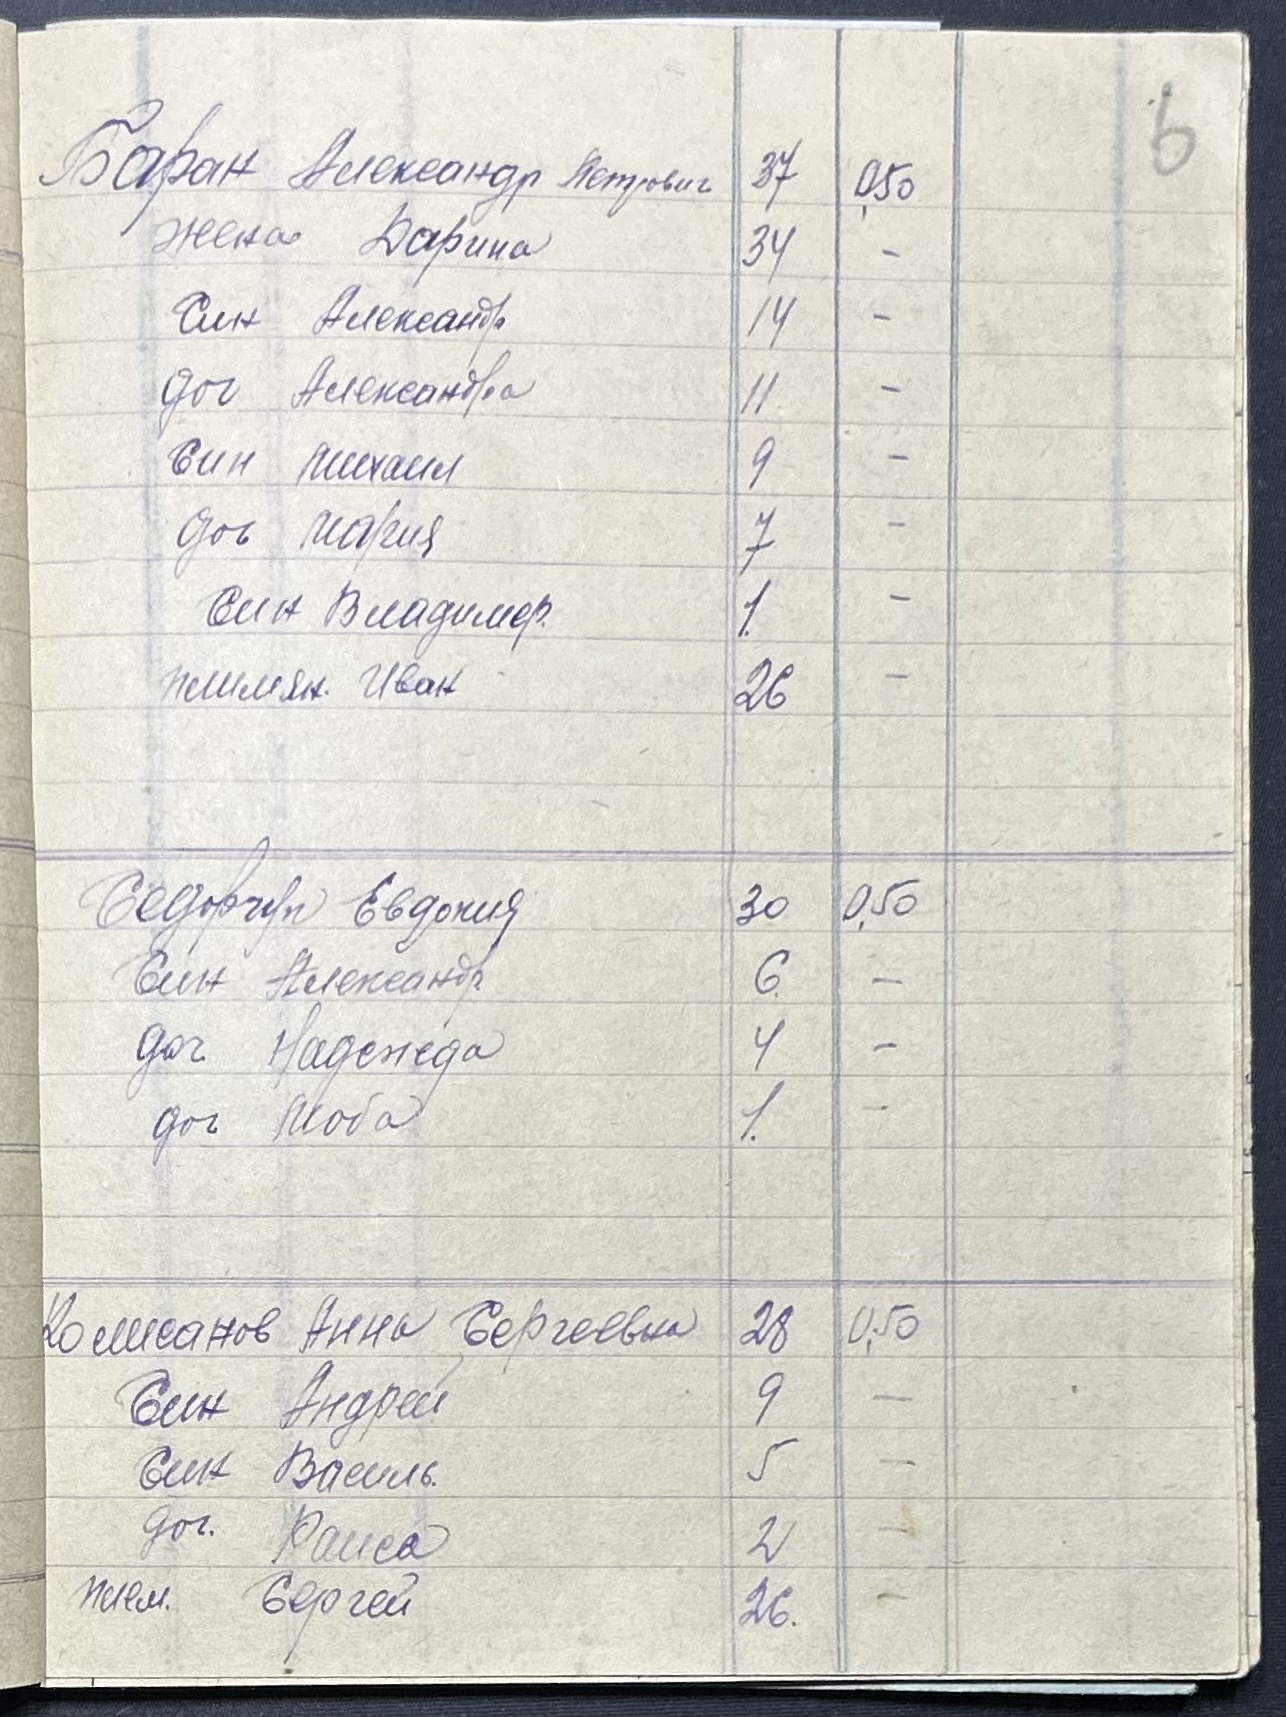 6
Баран Александр Петрович 37 0,50
жена Дарина 34 -
син Александр 14 -
доч Александра 11 -
син Михаил 9 -
доч Мария 7 -
син Владимер. 1. -
Иван 26 -
Федорчук Евдокия 30 0,50
син Александр 6. -
доч Надежеда 4 -
доч 1. -
Комисанов Анна Сергеевна 28 0,50
син Андрей 9 -
син Василь. 5 -
доч. Раиса 2 -
плем. Сергей 26. -